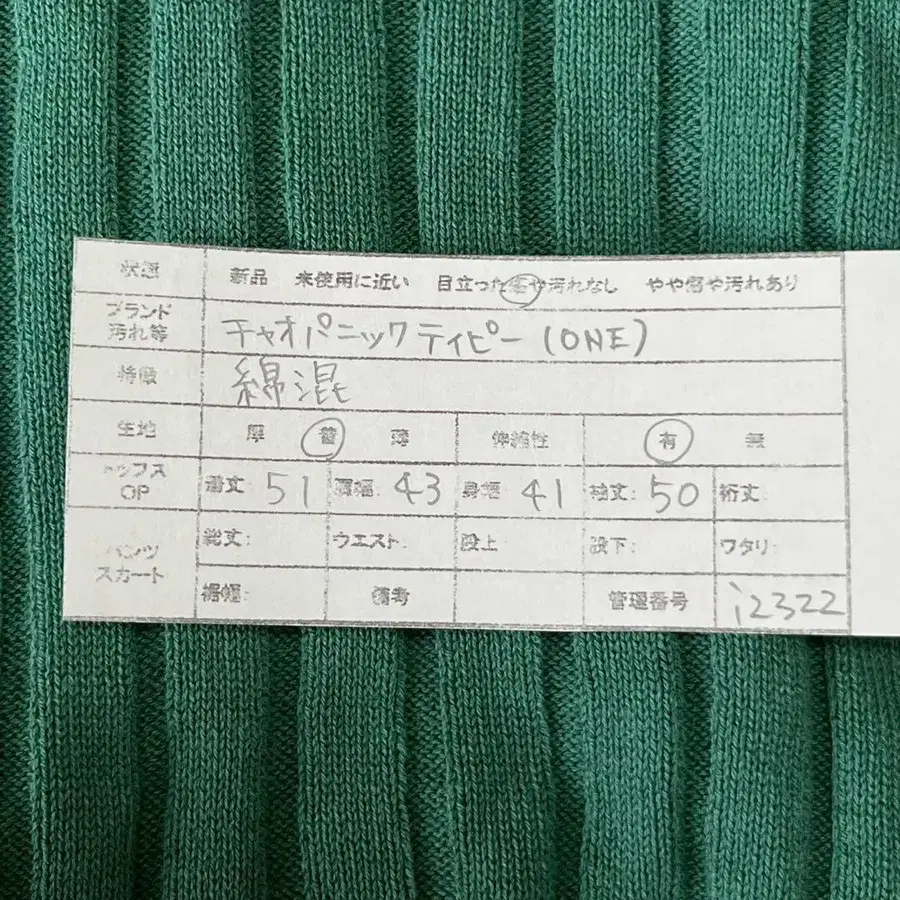 状態 新品 未使用に近い 目立った傷や汚れなし やや傷や汚れあり
ブランド
汚れ等 チャオパニックティピー(ONE)
特徴 綿混
生地 厚 普 薄 伸縮性 有 無
トップス
OP 着丈: 51 肩幅: 43 身幅: 41 袖丈: 50 裄丈:
パンツ
スカート 総丈: ウエスト: 股上: 股下: ワタリ:
裾幅: 備考 管理番号 i2322